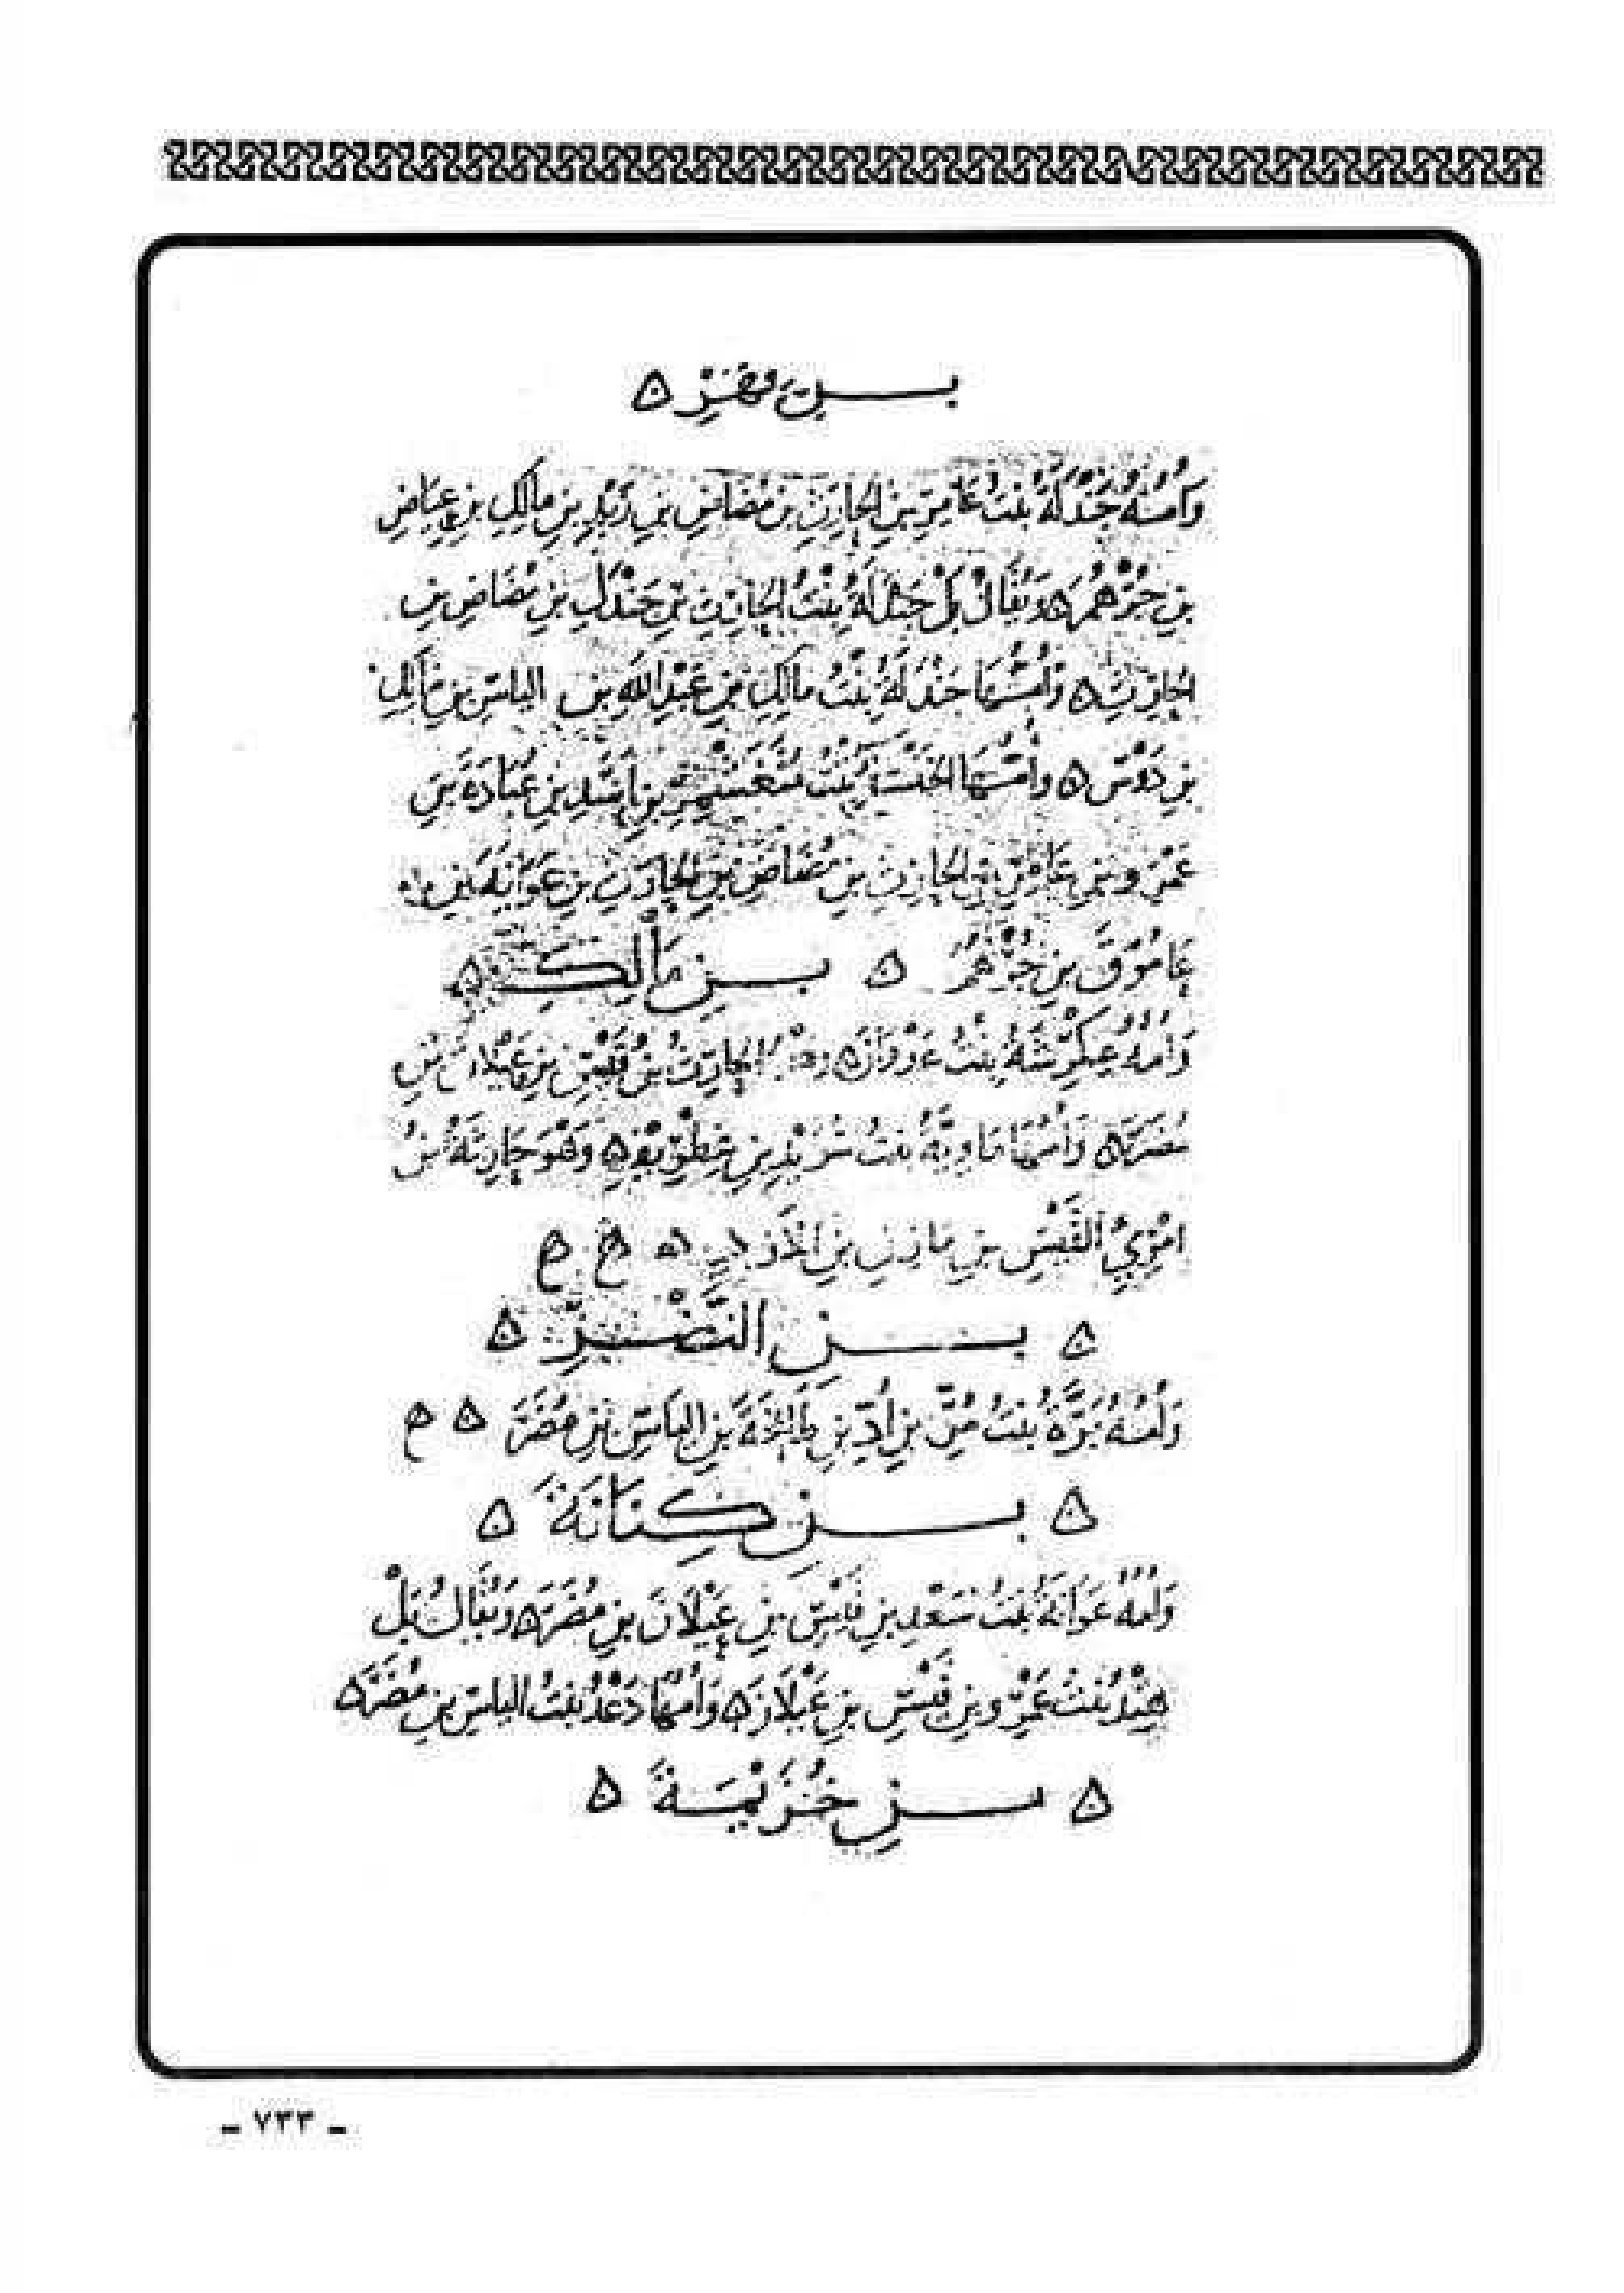 بن فهر ه
وَأُمُّهُ جَنْدَلَةُ بنتُ عَامِرِ بنِ الحارِثِ بن مُضَاضِ بنِ زَيْدِ بنِ مالِكِ بنِ عِيَاضِ
بنِ جُرْهُمَ ه وَيُقَالُ بَلْ جَنْدَلَةُ بِنْتُ الحارِثِ بنِ جَنْدَلِ بنِ مُضَاضِ بنِ
الحارِثِ ه وَأُمُّهَا جَنْدَلَةُ بِنْتُ مَالِكِ بنِ عَبْدِ اللهِ بنِ الياسِ بنِ مَالِكِ
بنِ دَوْسٍ ه وأُمُّهَا بِنْتُ بنِ أَسَدِ بنِ عُبَادَةَ بنِ
عَمْرِو بنِ عَامِرِ بنِ الحارِثِ بنِ مُضَاضِ بنِ الحارِثِ بنِ عَوَانَةَ بنِ
عَامُوقَ بنِ جُرْهُمَ ه بنِ مَالِكٍ ه
وَأُمُّهُ عِكْرِشَةُ بِنْتُ عَدْوَانَ ه الحارِثُ بنُ قَيْسِ بنِ عَيْلَانَ بنِ
مُضَرَ ه وَأُمُّهَا مَاوِيَّةُ بنتُ بنِ غِطْرِيفٍ ه وَهُوَ حَارِثَةُ بنُ
امْرِئِ القَيْسِ بنِ مَازِنِ بنِ الأَزْدِ ه ح ح
ه بنِ النَّضْرِ ه
وَأُمُّهُ بَرَّةُ بِنْتُ مُرِّ بنِ أُدِّ بنِ طَابِخَةَ بنِ الياسِ بنِ مُضَرَ ه ح
ه بنِ كِنَانَةَ ه
وَأُمُّهُ عَوَانَةُ بنتُ سَعْدِ بنِ قَيْسِ بنِ عَيْلَانَ بنِ مُضَرَ ه وَيُقَالُ بَلْ
هِنْدُ بنتُ عَمْرِو بنِ قَيْسِ بنِ عَيْلَانَ ه وَأُمُّهَا دَعْدُ بنتُ الياسِ بنِ مُضَرَ ه
ه بنِ خُزَيْمَةَ ه
- ٧٣٣ -